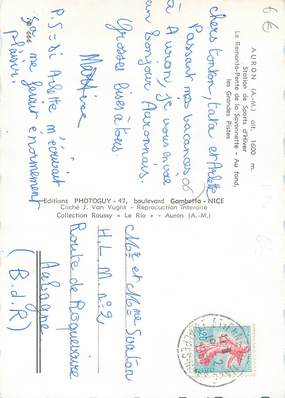 6€
AURON (A.-M.) alt. 1600 m.
Station de Sports d'Hiver
Le Remonte-Pente de la Savonnette - Au fond,
les Grandes Pistes
chers tonton, tata et Arlette
Passant mes vacances à
Auron, je vous envoie
un bonjour Auronnais.
Grosses bises à tous.
Martine
P.S = Si Arlette m'écrivait
ça me ferait énormément
plaisir.
Editions PHOTOGUY - 47, boulevard Gambetta - NICE
Cliché J. Van Vught - Reproduction Interdite
Collection Roussy « Le Rio » - Auron (A.-M.)
Mr et Mme
H.L.M. n°2
Route de Roquevaire
Aubagne
(B.d.R)